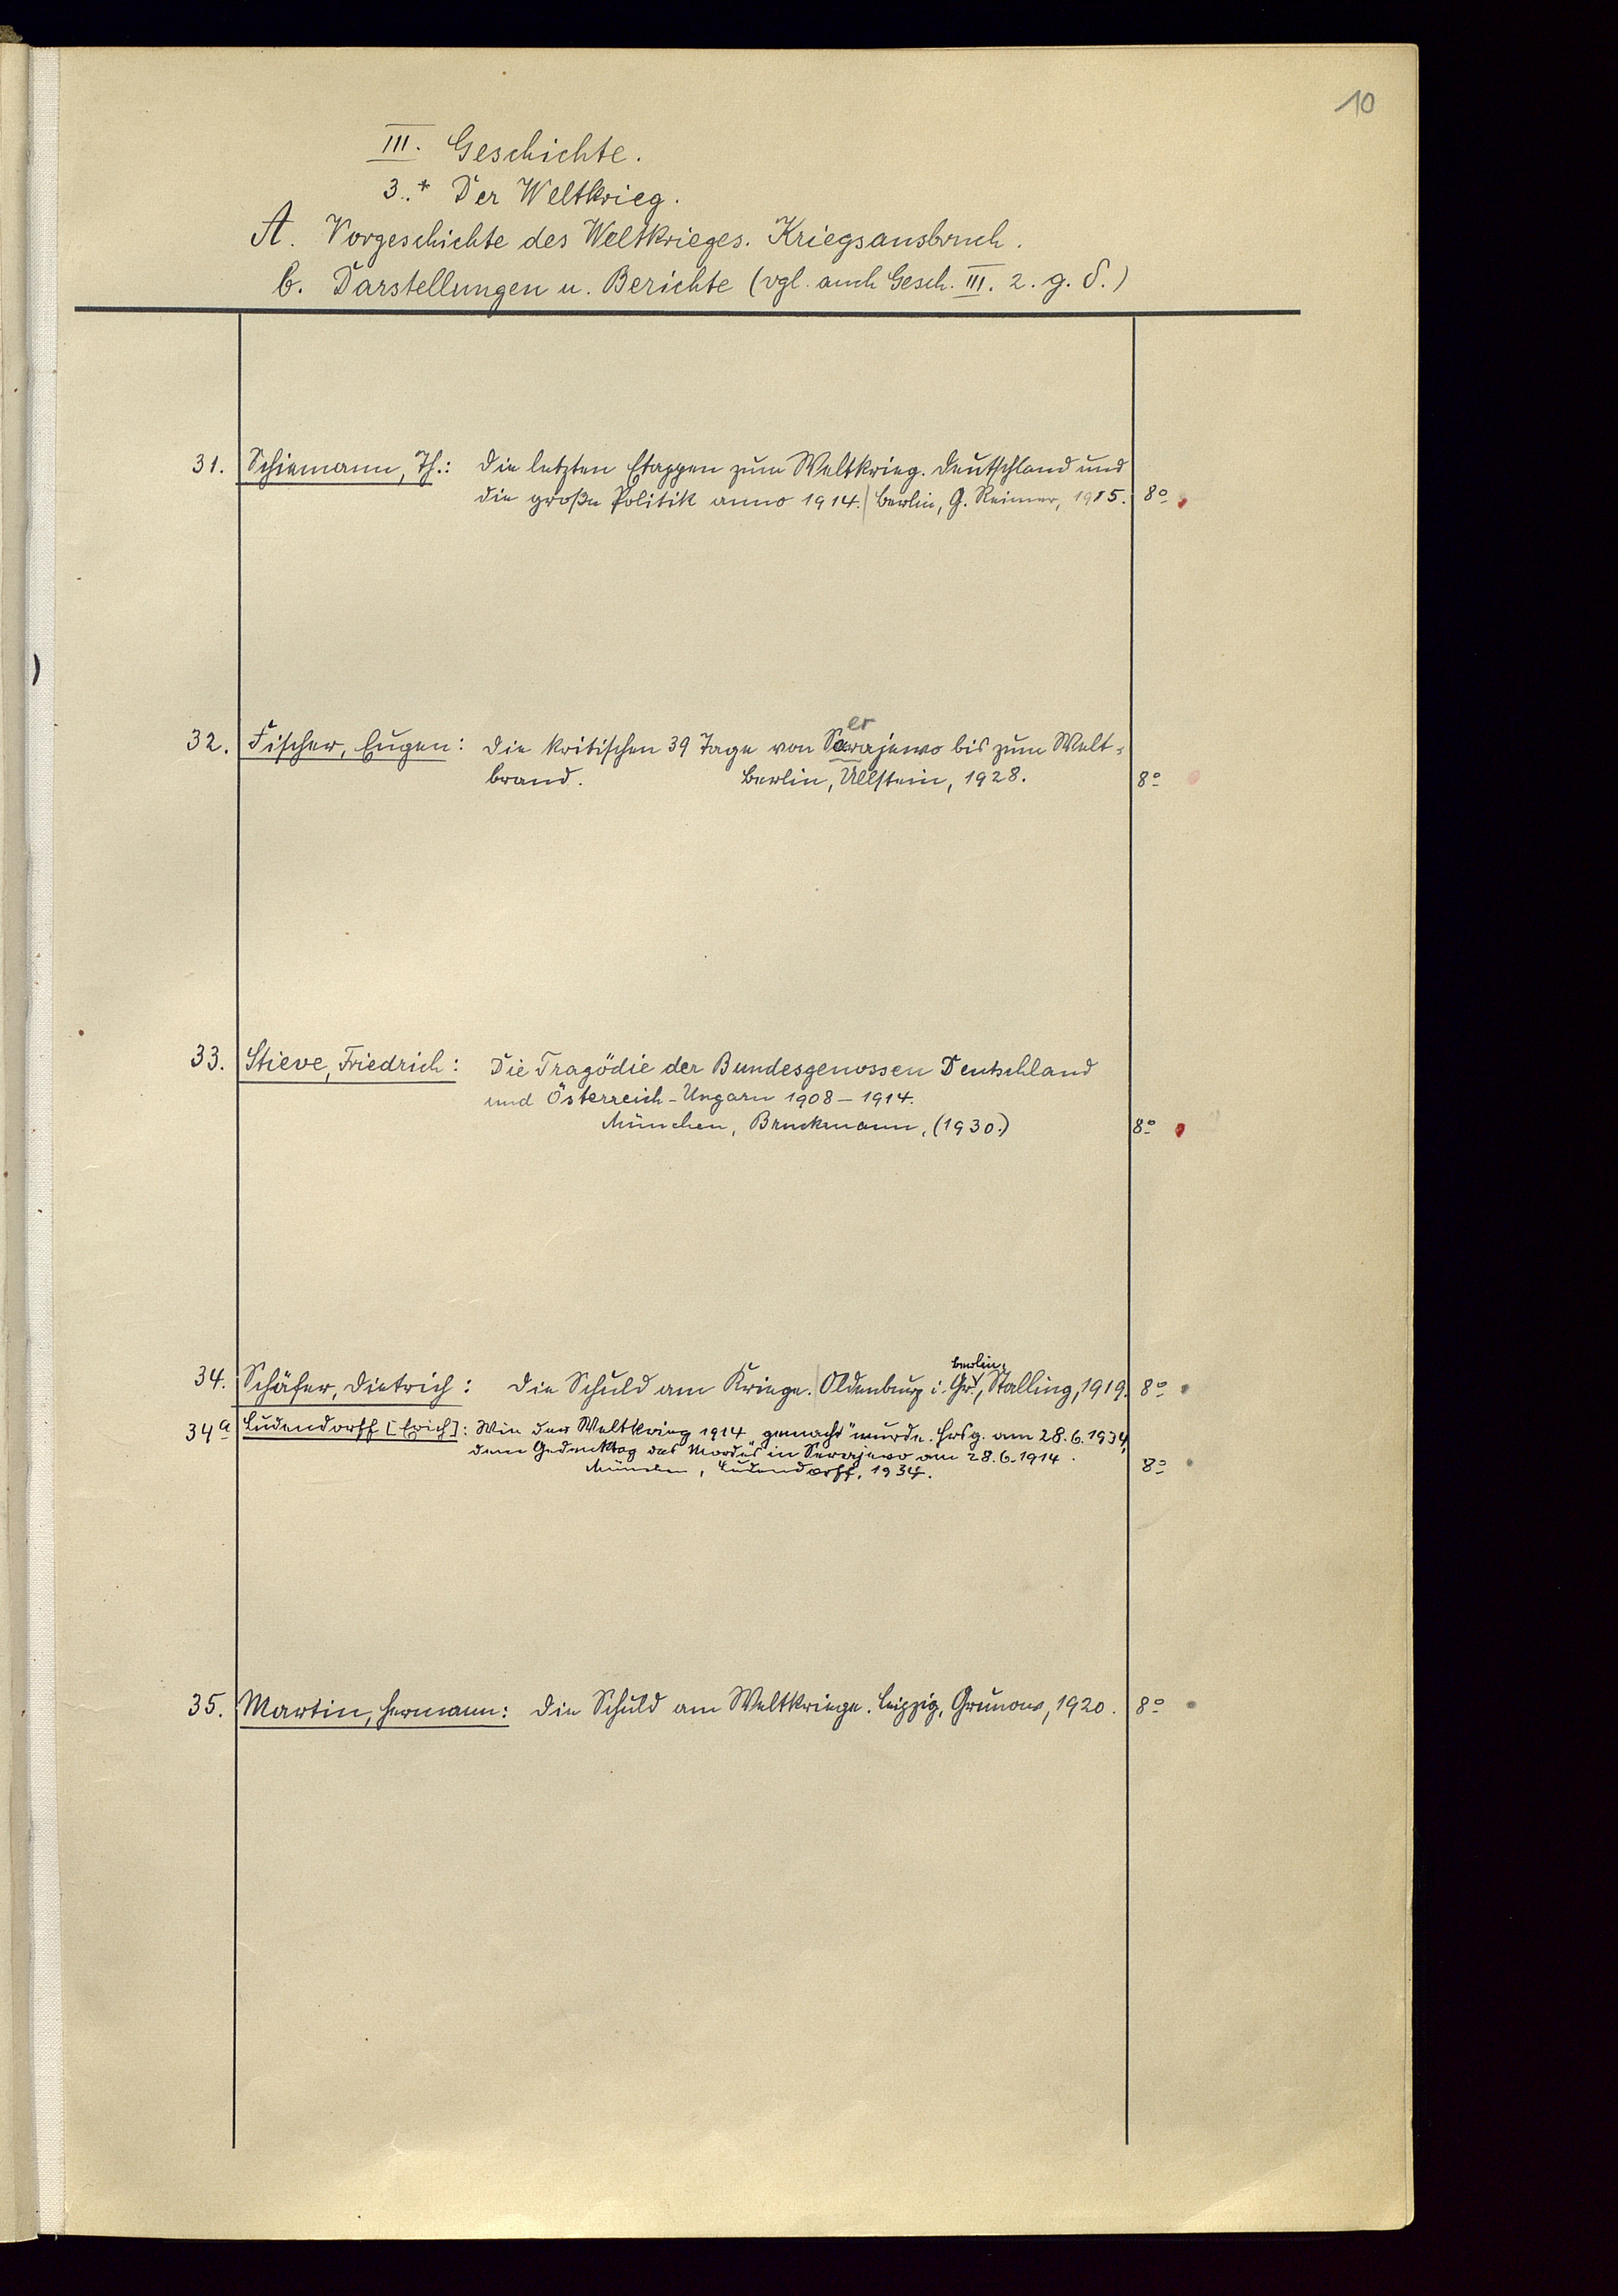 10
III. Geschichte.
3.* Der Weltkrieg.
A. Vorgeschichte des Weltkrieges. Kriegsausbruch.
b. Darstellungen u. Berichte (vgl. auch Gesch. III. 2. g. δ.)
31. Schiemann, Th.: Die letzten Etappen zum Weltkrieg. Deutschland und
die große Politik anno 1914. Berlin, G. Reimer, 1915. 8°
er
32. Fischer, Eugen: Die kritischen 39 Tage von Sarajewo bis zum Welt-
brand. Berlin, Ullstein, 1928. 8°
33. Stieve, Friedrich: Die Tragödie der Bundesgenossen Deutschland
und Österreich-Ungarn 1908–1914.
München, Bruckmann, (1930.) 8°
Berlin,
34. Schäfer, Dietrich: Die Schuld am Kriege. Oldenburg i. Gr., Stalling, 1919. 8°
34a Ludendorff [Erich]: Wie der Weltkrieg 1914 „gemacht" wurde. Hrsg. am 28.6.1934,
dem Gedenktag des Mordes in Serajewo am 28.6.1914.
München, Ludendorff, 1934. 8°
35. Martin, Hermann: Die Schuld am Weltkriege. Leipzig, Grunow, 1920. 8°